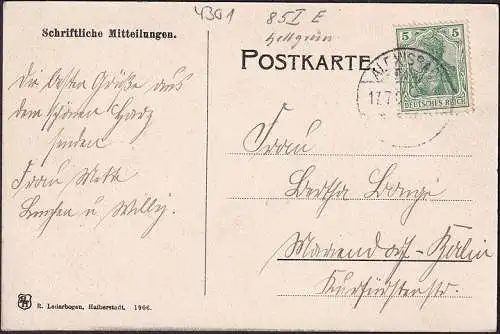 4301
85 I E
hellgrün
Schriftliche Mitteilungen.
POSTKARTE
5 5
DEUTSCHES REICH
17.7
Die besten Grüße aus
dem schönen Harz
senden
Frau Mette
Lenchen u Willy.
Frau
Bertha
Mariendorf-Berlin
Kurfürstenstr.
R. Lederbogen, Halberstadt. 1906.